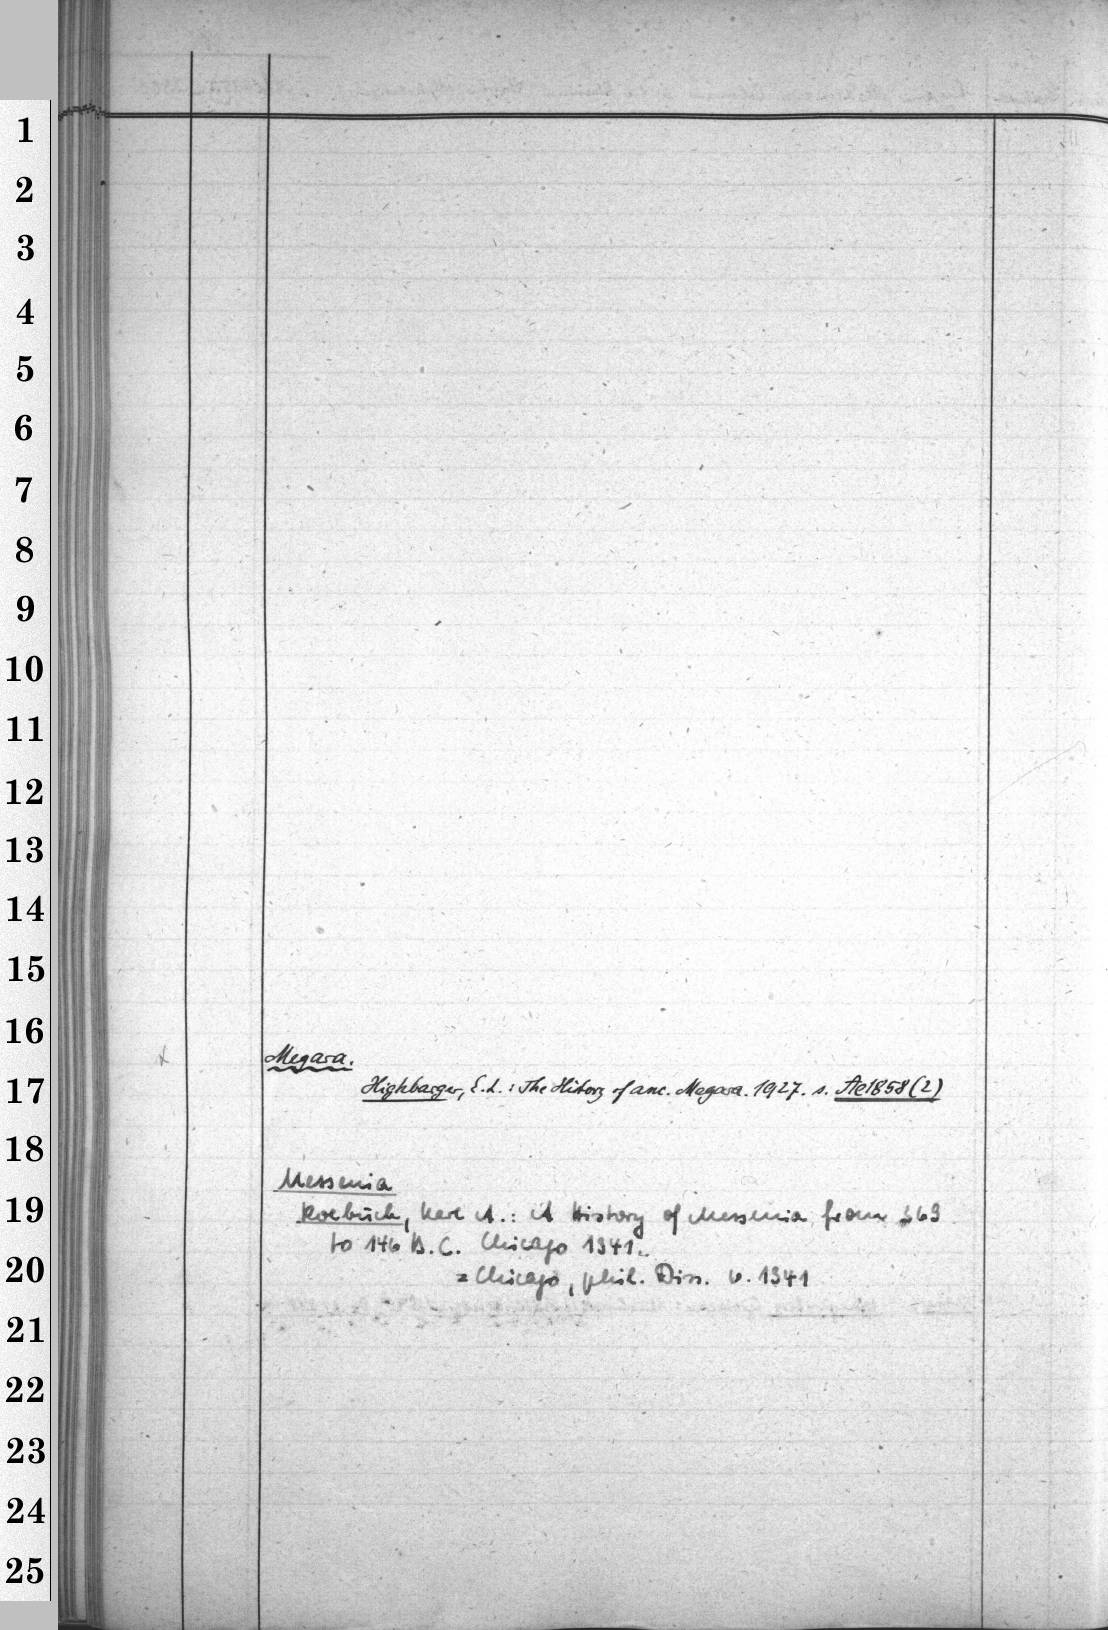 1
2
3
4
5
6
7
8
9
10
11
12
13
14
15
16
Megara.
17
Highbarger, E.L.: The History of anc. Megara. 1927. s. Ae1858(2)
18
Messenia
19
Roebuck, Karl A.: A History of Messenia from 369
to 146 B.C. Chicago 1941.
20
= Chicago, phil. Diss. v. 1941
21
22
23
24
25